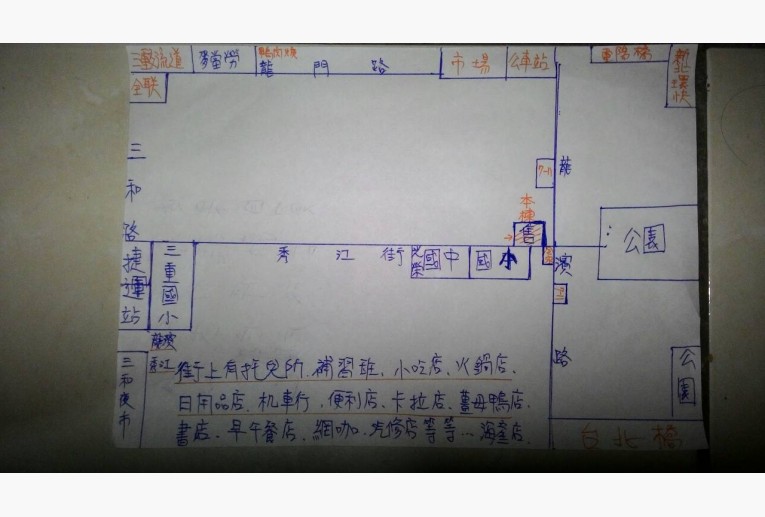 三重交流道
麥當勞
龍門路
市場
公車站
重陽橋
新北環快
全联
三和路
捷運站
三重國小
7-11
龍濱路
本棟
售
公園
秀江街
光榮國中
國小
公園
台北橋
龍濱
秀江
街上有托兒所、補習班、小吃店、火鍋店、
三和夜市
日用品店、机車行、便利店、卡拉店、薑母鴨店、
書店、早午餐店、網咖、汽修店等等…海產店、